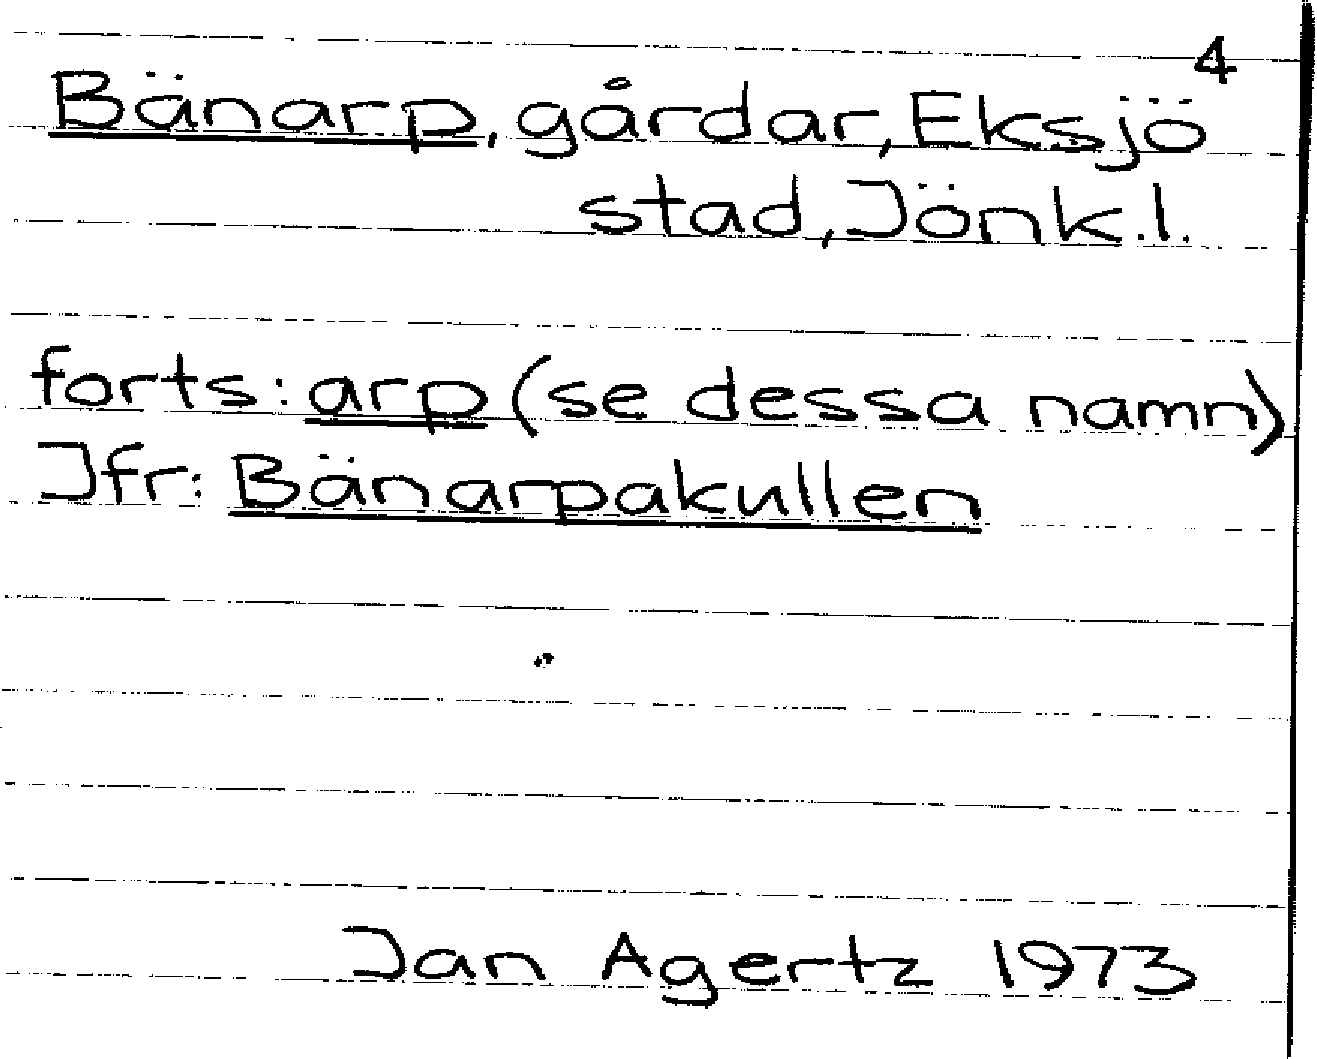 4
Bänarp, gårdar, Eksjö
stad, Jönk.l.
forts: arp (se dessa namn)
Jfr: Bänarpakullen
Jan Agertz 1973